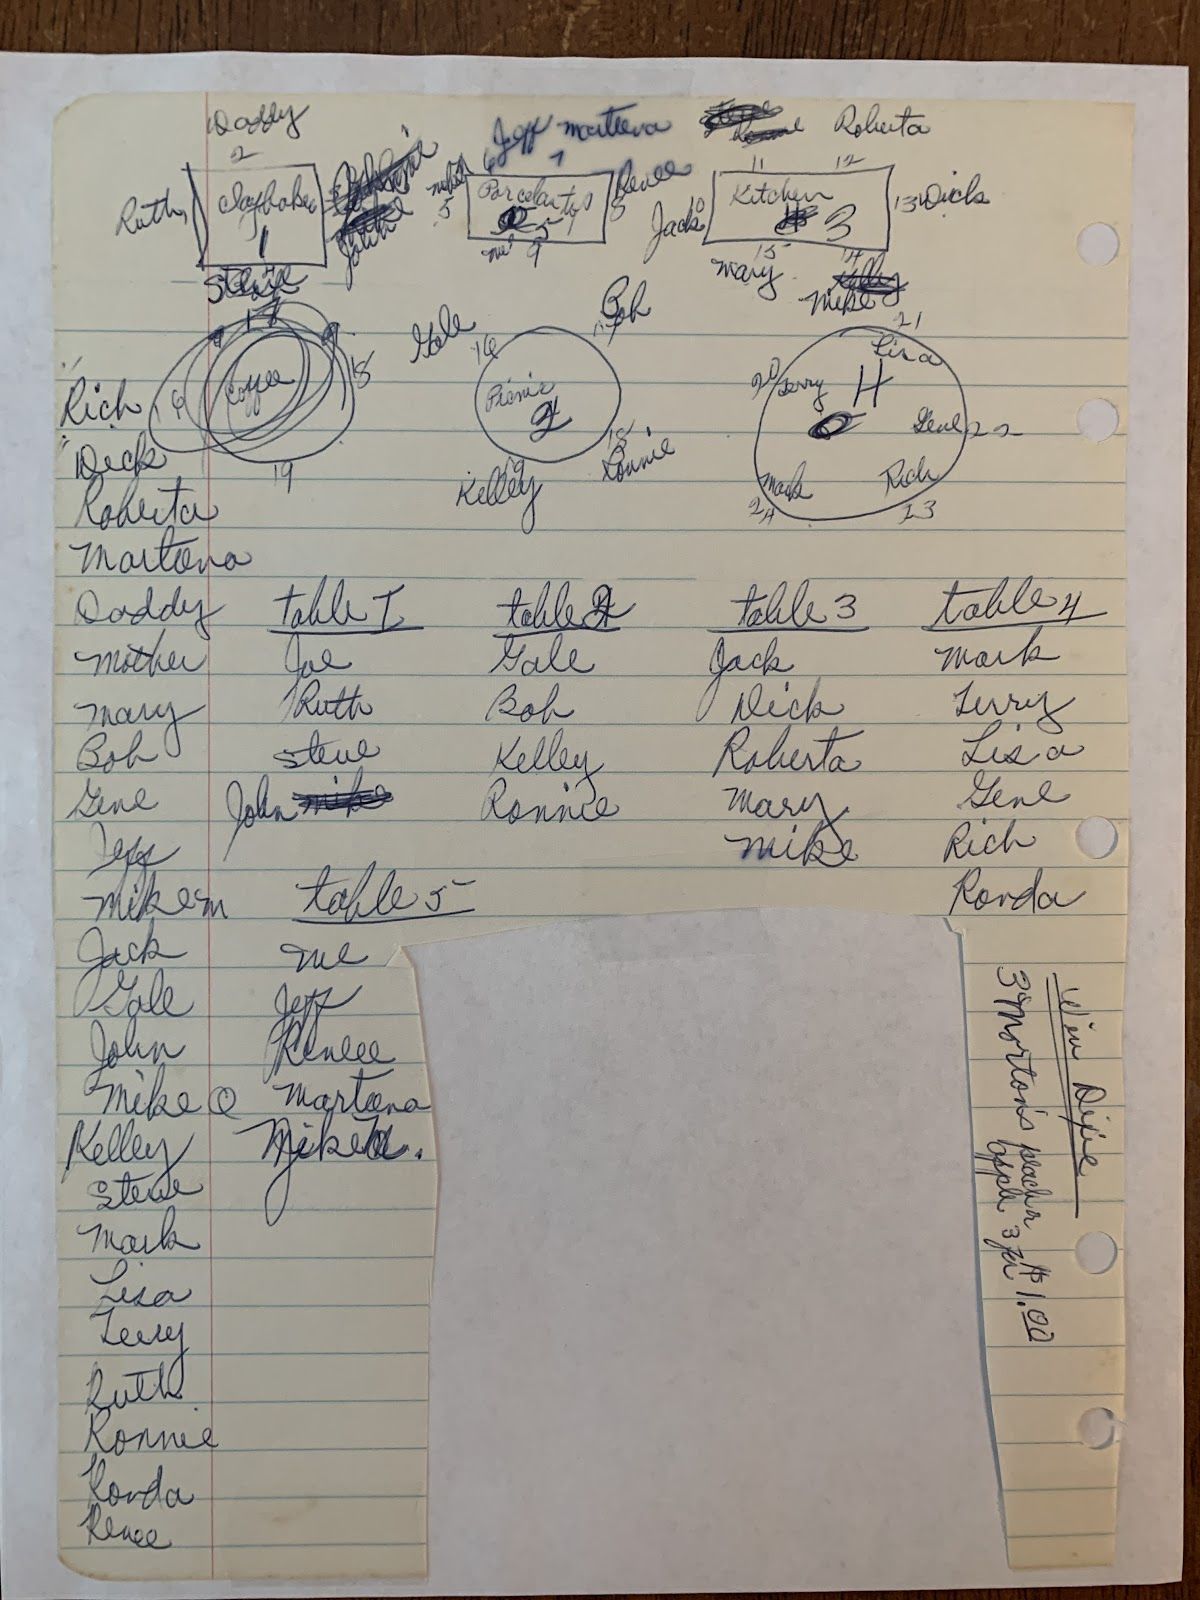 Daddy
Jeff Marteena
Roberta
2
6 7
11 12
Ruth
1
5
Renee
8
Jack
Kitchen
3
13 Dick
5
me 9
15 14
Steve
Mary
Mike
Gale
Bob
21
16
Lisa
18
20 Terry 4
Rich 6
Coffee
Picnic
2
Gene 22
Dick
18 Ronnie
19
19
Kelley
Mark
Rich
24
23
Roberta
Marteena
Daddy
Mother
Mary
Bob
Gene
Jeff
Mike M
Jack
Gale
John
Mike O
Kelley
Steve
Mark
Lisa
Terry
Ruth
Ronnie
Ronda
Renee
Table 1
Joe
Ruth
Steve
John
Table 2
Gale
Bob
Kelley
Ronnie
Table 3
Jack
Dick
Roberta
Mary
Mike
Table 4
Mark
Terry
Lisa
Gene
Rich
Ronda
Table 5
me
Jeff
Renee
Marteena
Mike M.
Win Dixie
Morton's peach
apple 3 for $1.00